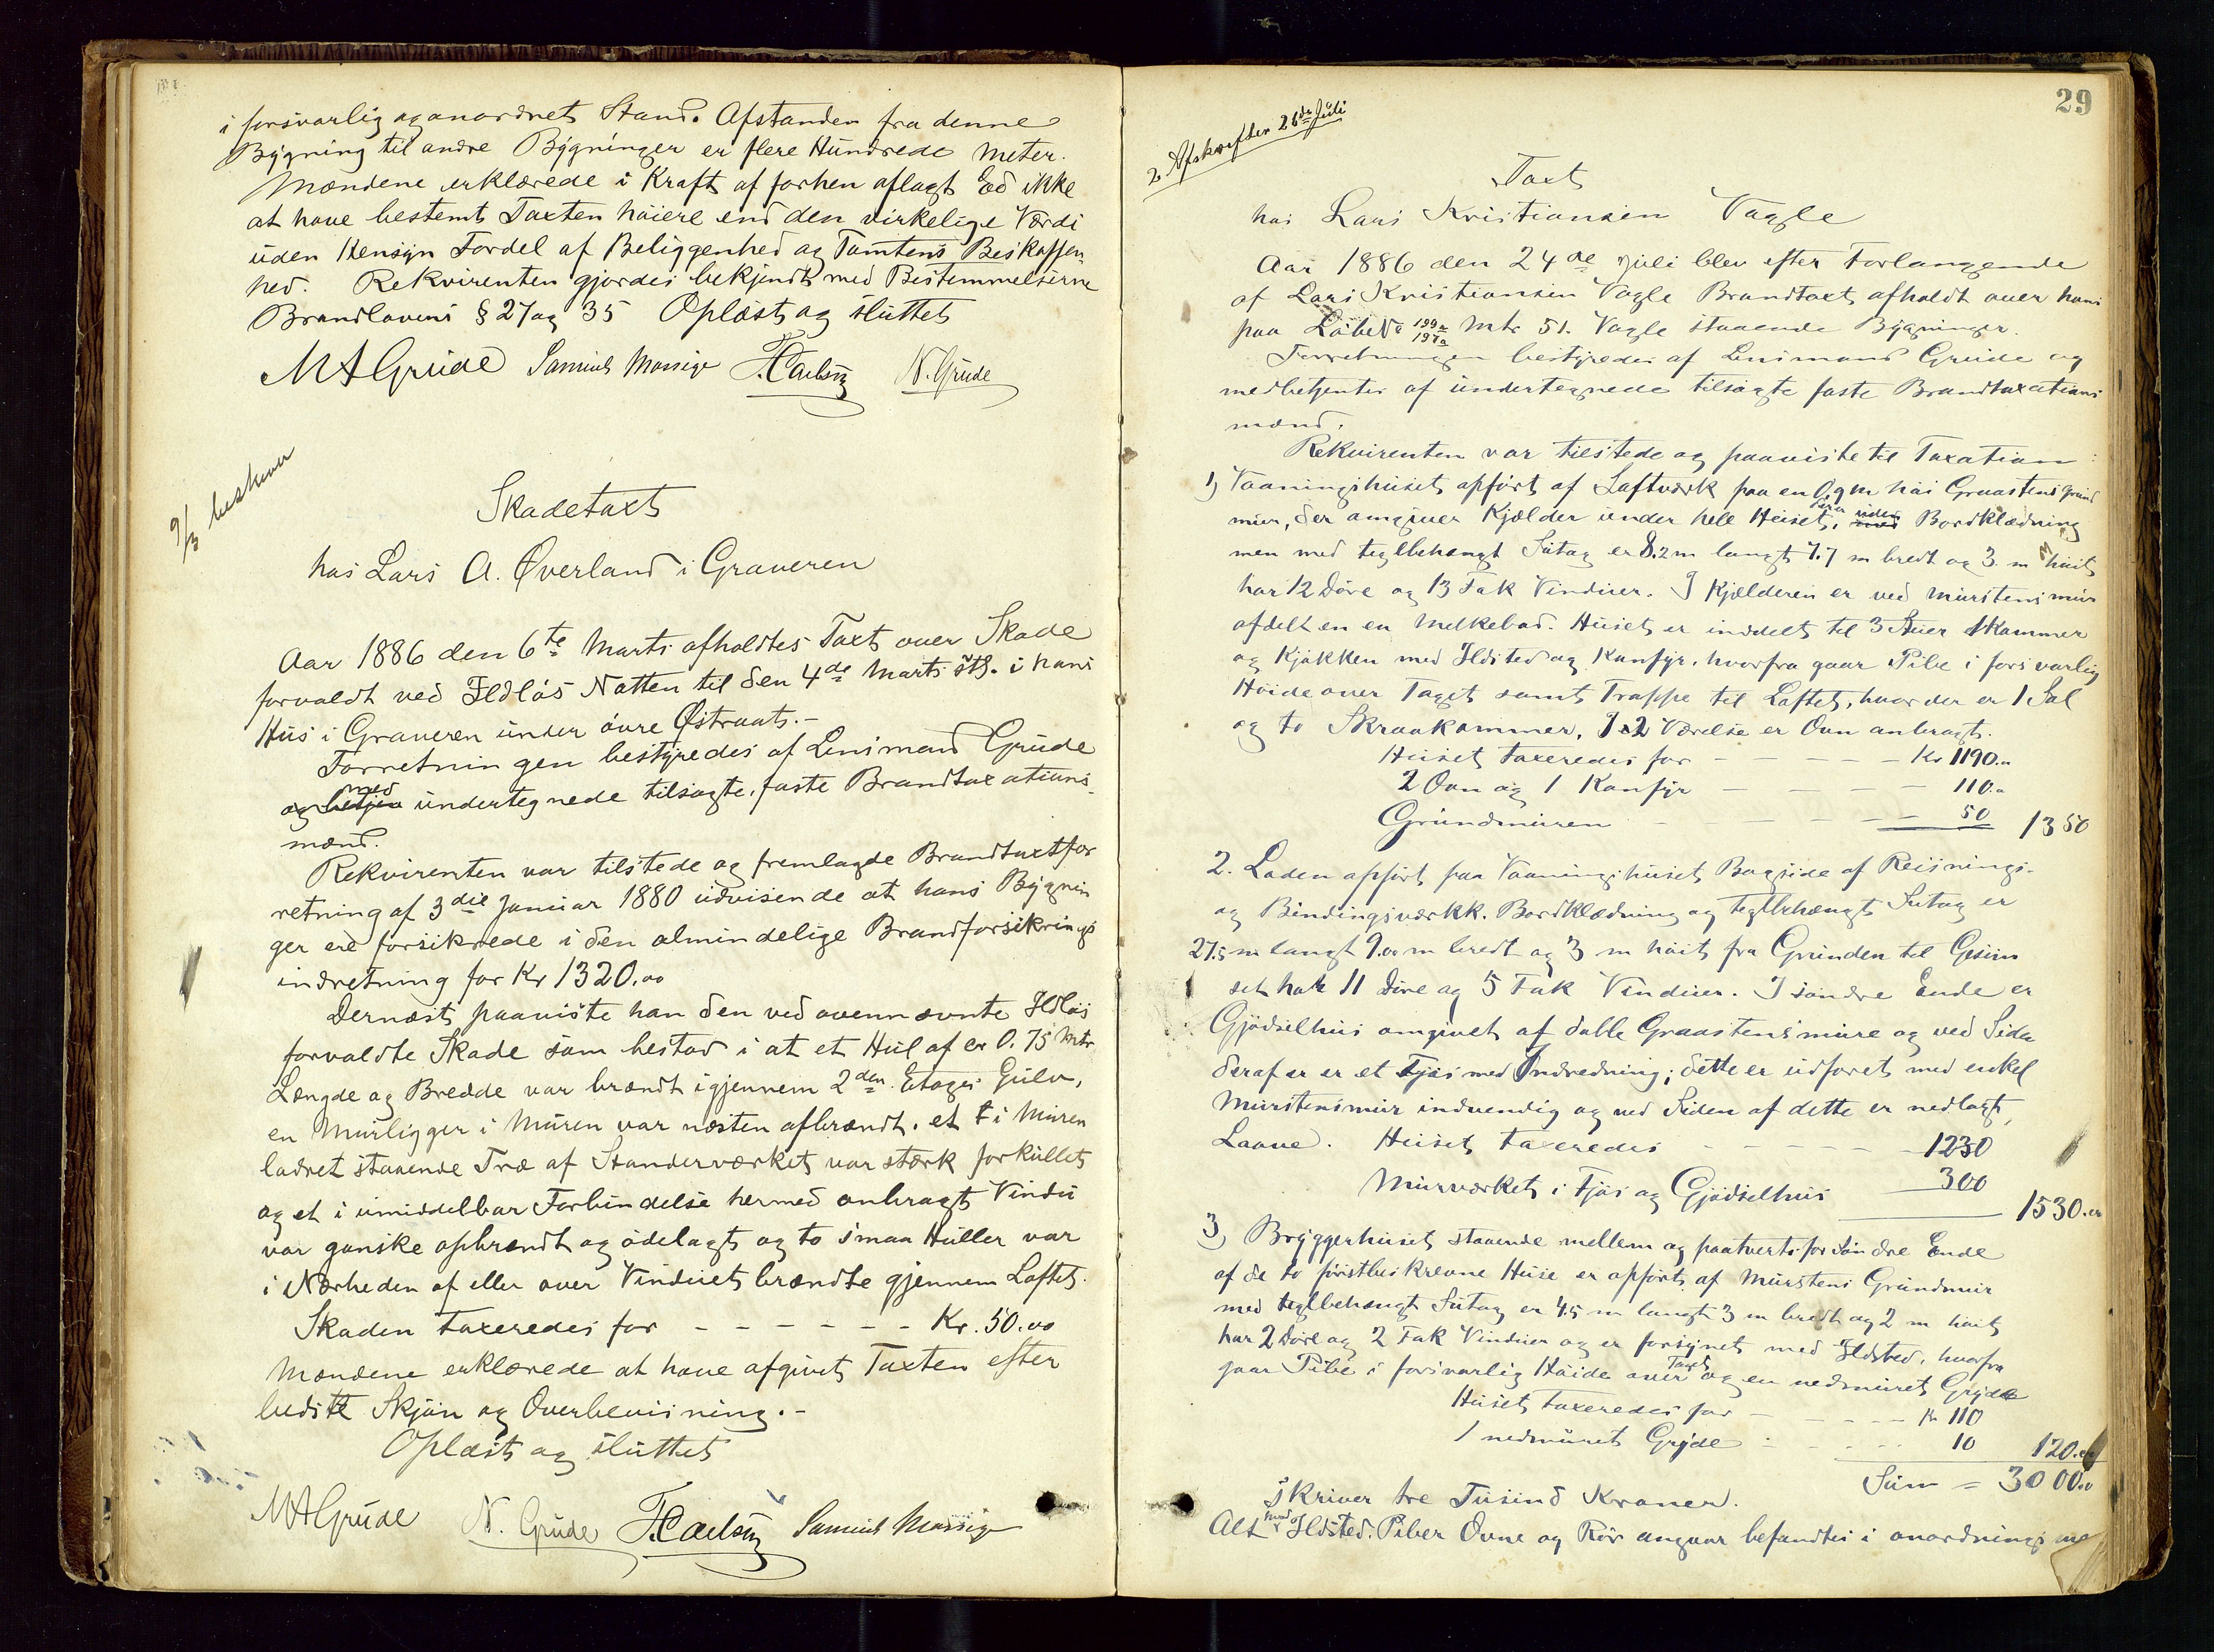 i forsvarlig og anordnet Stand. Afstanden fra denne
Bygning til andre Bygninger er flere Hundrede meter.
Mændene erklærede i Kraft af forhen aflagt Ed ikke
at have bestemt Taxten høiere end den virkelige Værdi
uden Hensyn Fordel af Beliggenhed og Tomtens Beskaffen
hed. Rekvirenten gjordes bekjendt med Bestemmelserne
Brandlovens § 27 og 35 Oplæst og sluttet
MAGrude Samuel Massige N. Grude
9/3 beskrever
Skadetaxt
hos Lars A. Øverland i Graveren
Aar 1886 den 6te Marts afholdtes Taxt over Skade
forvoldt ved Ildløs Natten til den 4de Marts sth. i hans
Hus i Graveren under øvre Østraat.-
Forretningen bestyredes af Lensmand Grude
og betjen med undertegnede tilsagte, faste Brandtaxations-
mænd.
Rekvirenten var tilstede og fremlagde Brandtaxtfor
retning af 3die Januar 1880 udvisende at hans Bygnin
ger ere forsikrede i den almindelige Brandforsikrings
indretning for Kr 1320.00
Dernæst paaviste han den ved ovennævnte Ildløs
forvoldte Skade som bestod i at et Hul af cr 0.75 Mtr
Længde og Bredde var brændt igjennem 2den Etages Gulv,
en Murligger i Muren var næsten afbrændt. et i Muren
lodret staaende Træ af Standerværket var stærk forkullet
og et i umiddelbar Forbindelse hermed anbragt Vindu
var ganske opbrændt og ødelagt og to smaa Huller var
i Nærheden af eller over Vinduet brændte gjennem Loftet.
Skaden taxeredes for - - - - - - Kr. 50.00
Mændene erklærede at have afgivet Taxten efter
bedste Skjøn og Overbevisning.-
Oplæst og sluttet
MAGrude N. Grude Samuel Massige
29
2 Afskrefter 26de Juli
Taxt
hos Lars Kristiansen Vagle
Aar 1886 den 24de Juli blev efter Forlangende
af Lars Kristiansen Vagle Brandtaxt afholdt over hans
paa Løbe No 199a 197a Mtr 51. Vagle staaende Bygninger.
Forretningen bestyredes af Lensmand Grude og
medbetjentes af undertegnede tilsagte faste Brandtaxations
mænd.
Rekvirenten var tilstede og paaviste til Taxation:
1) Vaaningshuset opført af Laftværk paa en 0,9 m høi Graastens Grund
mur, der omgiver Kjælder under hele Huset, der er uden Bordklædning
men med teglbehængt Sutag er 8.2 m langt 7.7 m bredt og 3. m høit
har 12 Døre og 13 Fak Vinduer. I Kjælderen er ved Murstensmur
afdelt en en Melkebod. Huset er inddelt til 3 Stuer 1 Kammer
og Kjøkken med Ildsted og Komfyr. hvorfra gaar Pibe i forsvarlig
Høide over Taget samt Trappe til Loftet, hvor der er 1 Sal
og to Skraakammer. I 2 Værelse er Ovn anbragt.
Huset taxeredes for - - - - - Kr 1190.00
2 Ovn og 1 Komfyr - - - - 110.00
Grundmuren - - - - - 50 1350
2. Laden opført paa Vaaningshuset Bagside af Reisnings-
og Bindingsværkk. Bordklædning og teglbehængt Sutag er
27.5 m langt 9.00 m bredt og 3 m høit fra Grunden til Gesim
set har 11 Døre og 5 Fak Vinduer. I søndre Ende er
Gjødselhus omgivet af dobl. Graastensmure og ved Siden
deraf er er et Fjøs med Indredning; dette er udforet med enkel
Murstensmur indvendig og ved Siden af dette er nedlagt
Laave. Huset taxeredes - - - - 1230
Murværket i Fjøs og Gjødselhus 300 1530.00
3) Bryggerhuset staaende mellem og paatverts for Søndre Ende
af de to førstbeskrevne Huse er opført af Murstens Grundmur
med teglbehængt Sutag er 4.5 m langt 3 m bredt og 2 m høit
har 2 Døre og 2 Fak Vinduer og er forsynet med Ildsted, hvorfra
gaar Pibe i forsvarlig Høide over Taget og en nedmuret Gryde
Huset taxeredes for - - - - - Kr 110
1 nedmuret Gryde - - - - 10 120.00
Sum = 3000.00
skriver tre Tusind Kroner.
Alt hvad Ildsted. Piber Ovne og Rør angaar befandtes i anordnings